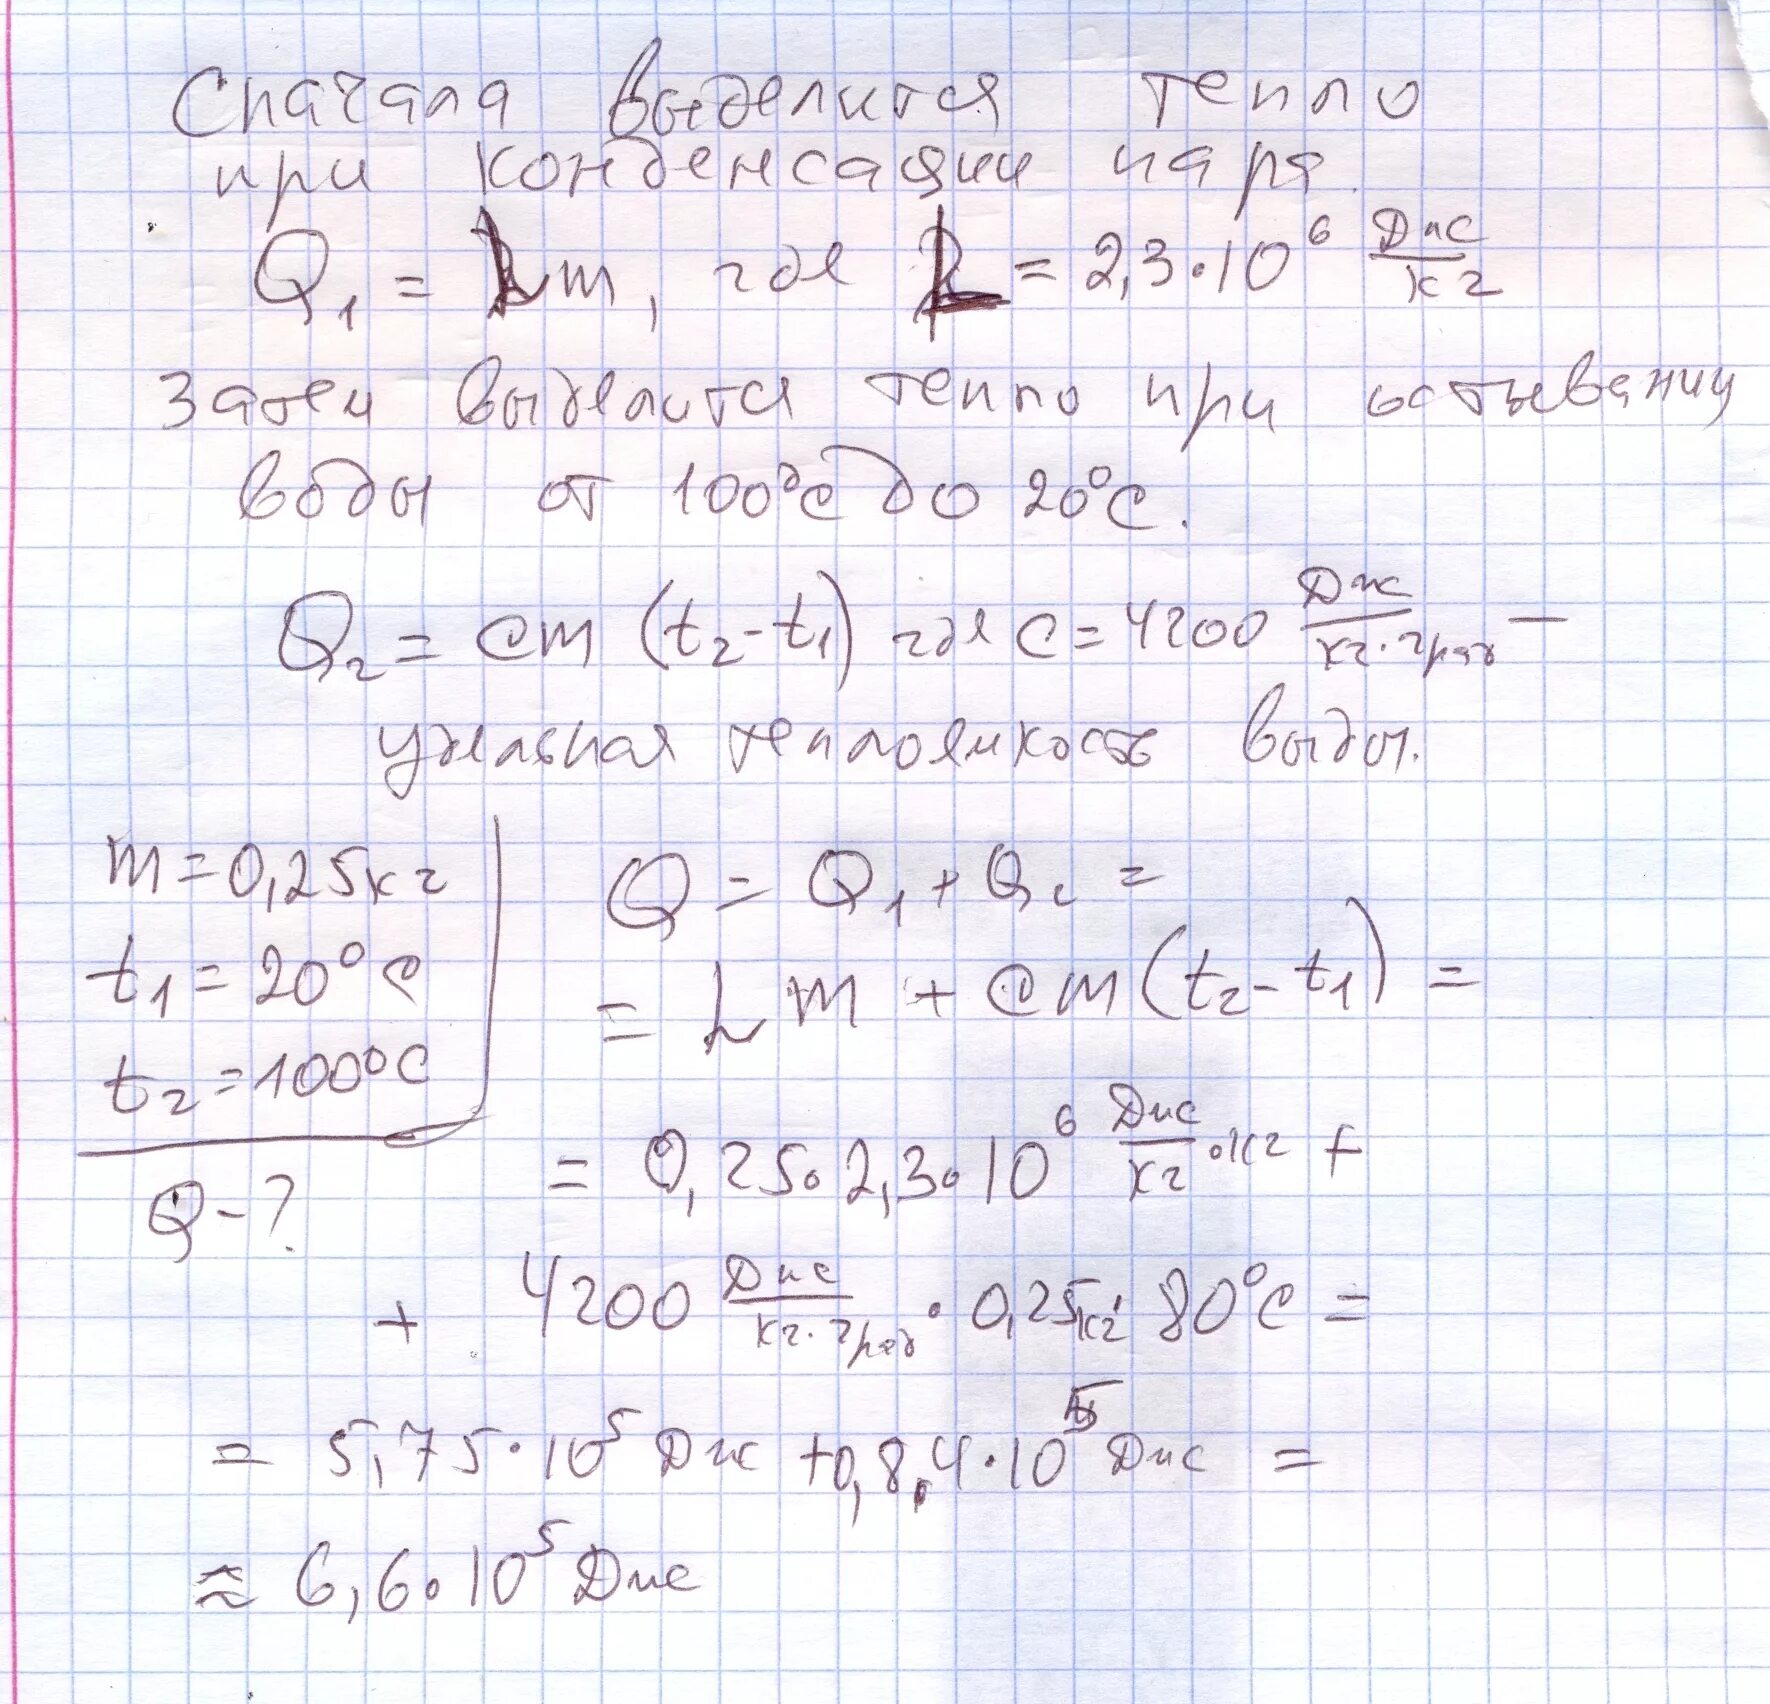 Сначала выделится тепло
при конденсации пара.
Q₁ = Lm, где L = 2,3·10⁶ Дж/кг
Затем выделится тепло при остывании
воды от 100°С до 20°С.
Q₂ = cm (t₂ - t₁) где c = 4200 Дж/кг·град —
удельная теплоемкость воды.
m = 0,25 кг
t₁ = 20°С
t₂ = 100°С
Q - ?
Q = Q₁ + Q₂ =
= Lm + cm (t₂ - t₁) =
= 0,25·2,3·10⁶ Дж/кг · кг +
+ 4200 Дж/кг·град · 0,25кг · 80°С =
= 5,75·10⁵ Дж + 0,84·10⁵ Дж =
≈ 6,6·10⁵ Дж